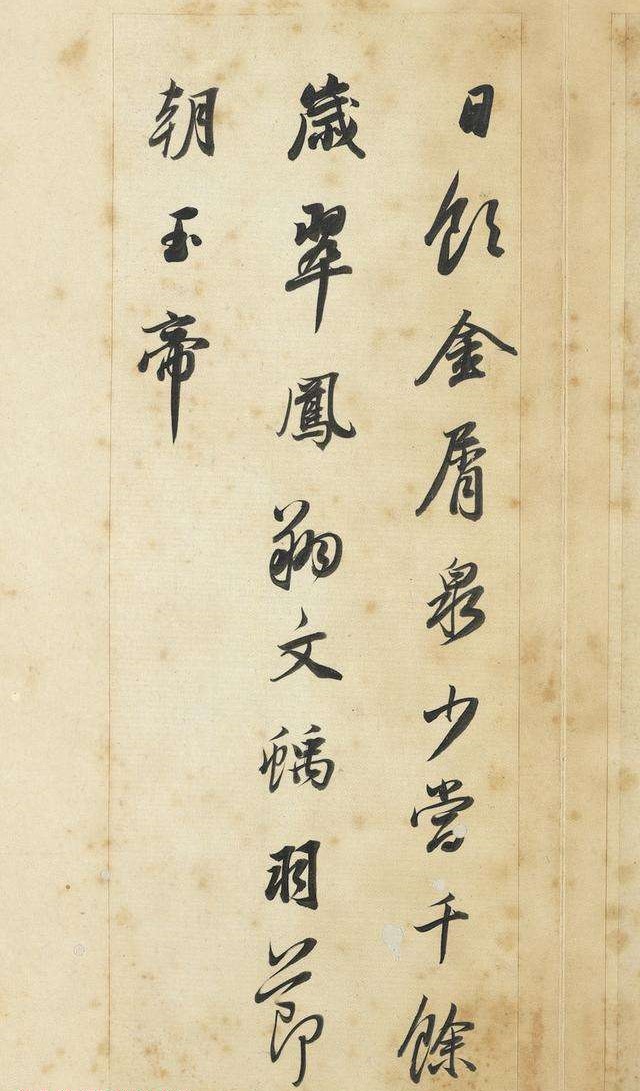 日飲金屑泉少當千餘
歲翠鳳翔文螭羽節
朝玉帝